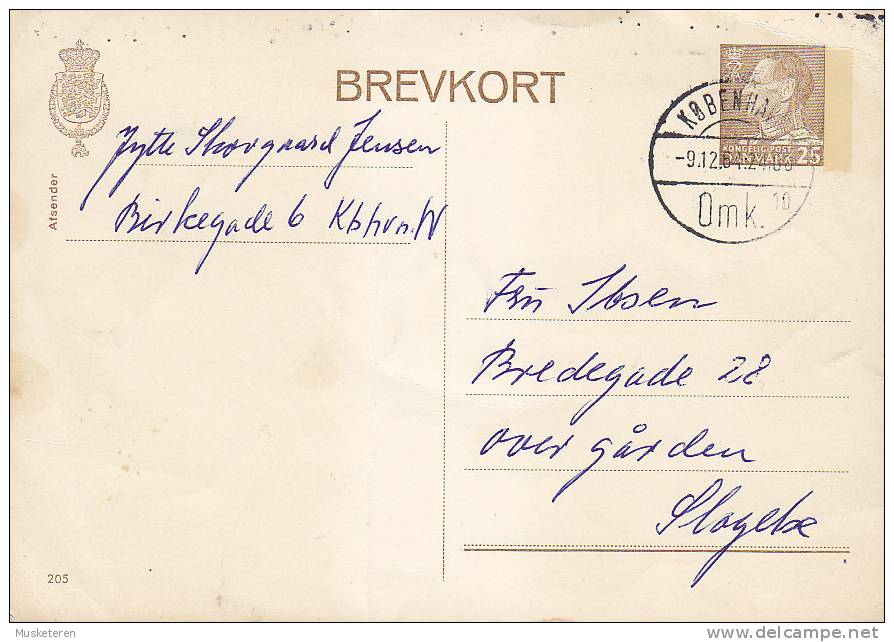 BREVKORT
Afsender
Jytte Skovgaard Jensen
Birkegade 6 Kbhvn. N
KØBENHA
-9.12.64.24.00
Omk. 10
KONGELIG POST
DANMARK 25
Fru Ibsen
Bredegade 22
over gården
Slagelse
205
Musketeren
delcampe.net